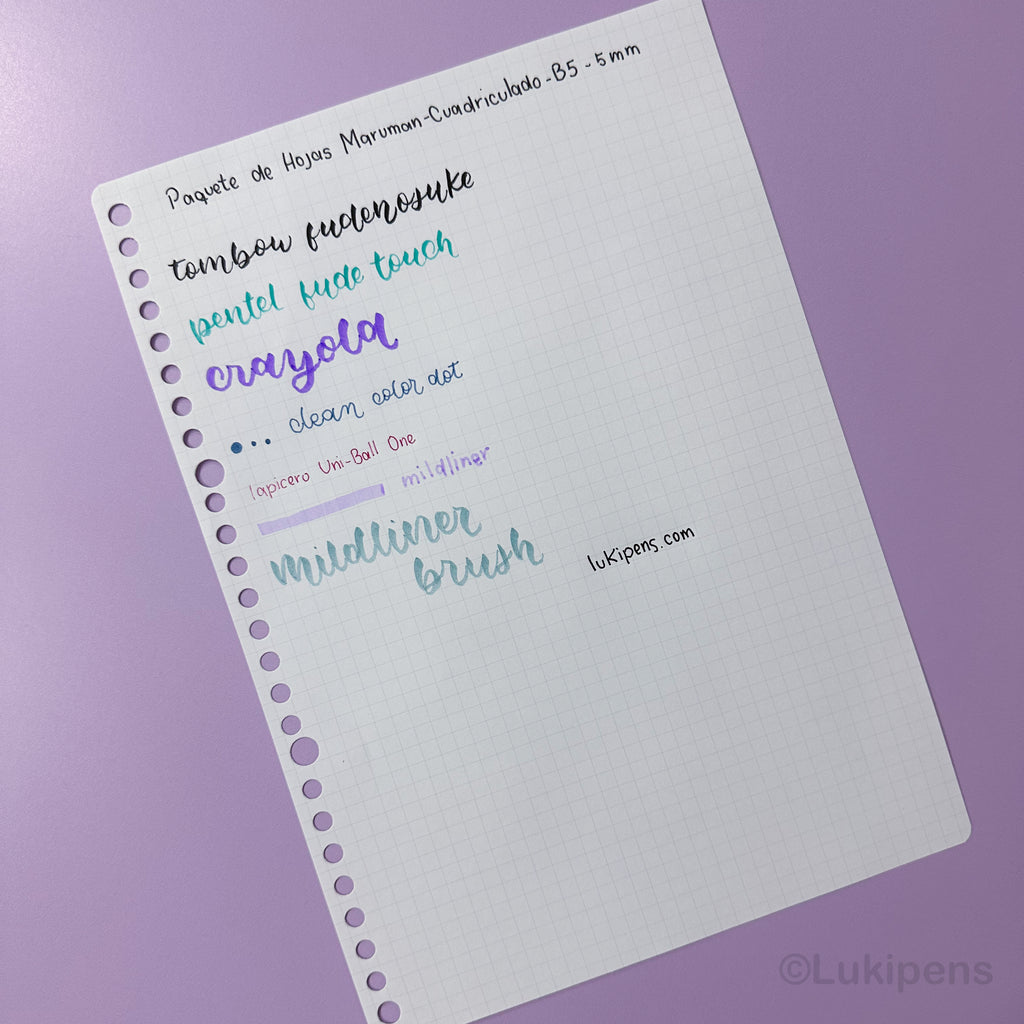 Paquete de Hojas Maruman-Cuadriculado-B5-5mm
tombow fudenosuke
pentel fude touch
crayola
clean color dot
lapicero Uni-Ball One
mildliner
mildliner
brush
lukipens.com
©Lukipens